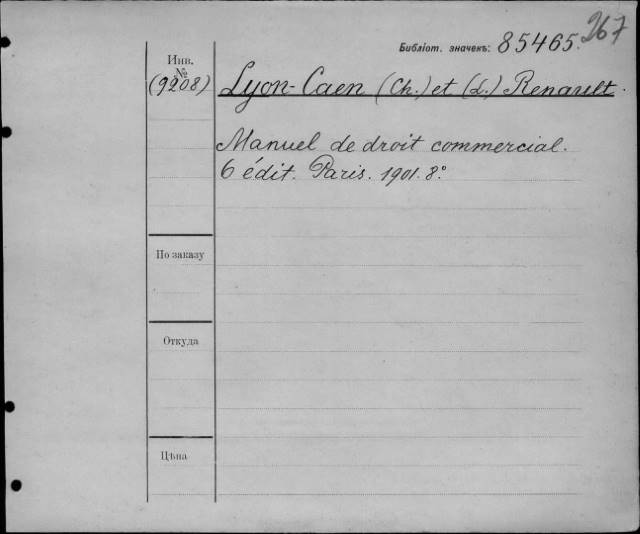 267
Библіот. значекъ: 85465.
Инв.
№
(9208)
Lyon-Caen (Ch.) et (L.) Renault.
Manuel de droit commercial.
6 édit. Paris. 1901. 8º.
По заказу
Откуда
Цѣна